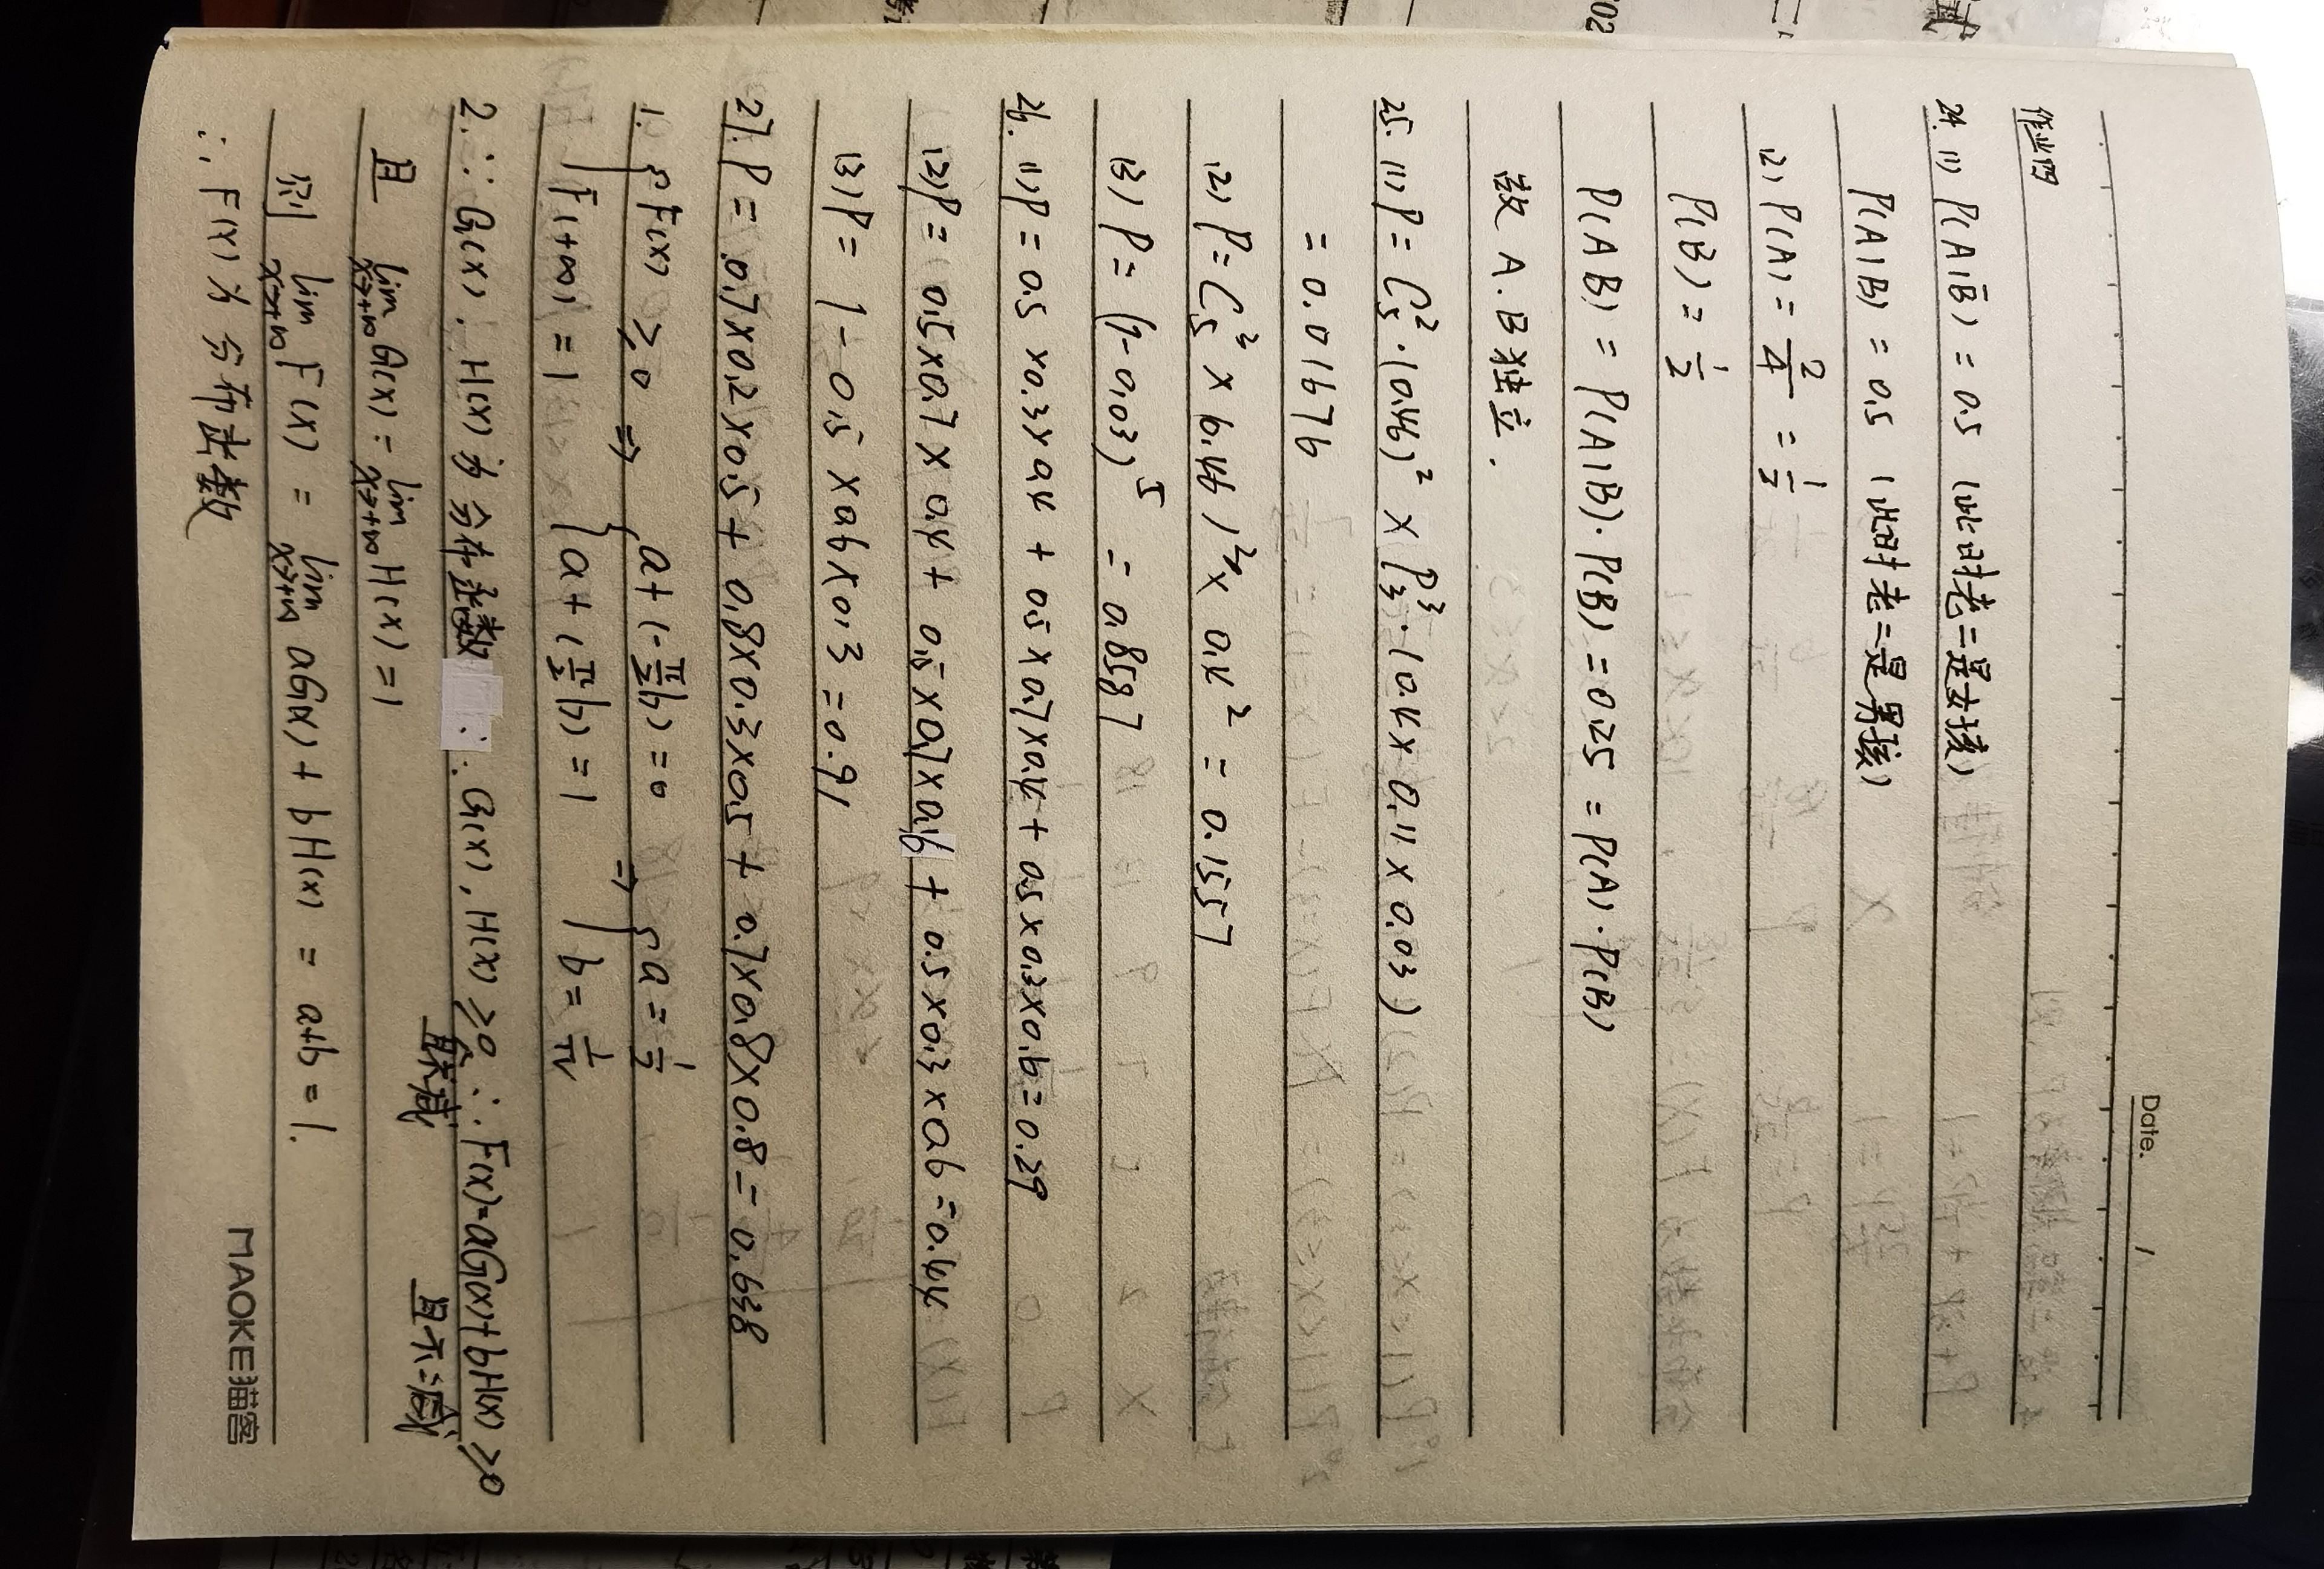 Date. /
作业四
24. (1) P(A|B̄) = 0.5 (此时老二是女孩)
P(A|B) = 0.5 (此时老二是男孩)
(2) P(A) = 2/4 = 1/2
P(B) = 1/2
P(AB) = P(A|B)·P(B) = 0.25 = P(A)·P(B)
故 A.B 独立.
25. (1) P = C₅²·(0.46)² × P₃³·(0.4 × 0.11 × 0.03)
= 0.01676
(2) P = C₅³ × (0.46)³ × 0.4² = 0.1557
(3) P = (1-0.03)⁵ = 0.8587
26. (1) P = 0.5 × 0.3 × 0.4 + 0.5 × 0.7 × 0.4 + 0.5 × 0.3 × 0.6 = 0.29
(2) P = 0.5 × 0.7 × 0.4 + 0.5 × 0.7 × 0.6 + 0.5 × 0.3 × 0.6 = 0.44
(3) P = 1 - 0.5 × 0.6 × 0.3 = 0.91
27. P = 0.7×0.2×0.5 + 0.8×0.3×0.5 + 0.7×0.8×0.8 = 0.638
1. { F(x) ≥ 0 ⇒ { a + (-π/2 b) = 0 ⇒ { a = 1/2
F(+∞) = 1 a + (π/2 b) = 1 b = 1/π
2. ∵ G(x), H(x) 为分布函数 ∴ G(x), H(x) ≥ 0 ∴ F(x) = aG(x) + bH(x) ≥ 0
且不减 且不减
且 lim x→+∞ G(x) = lim x→+∞ H(x) = 1
则 lim x→+∞ F(x) = lim x→+∞ aG(x) + bH(x) = a+b = 1.
∴ F(x) 为分布函数
MAOKE猫客